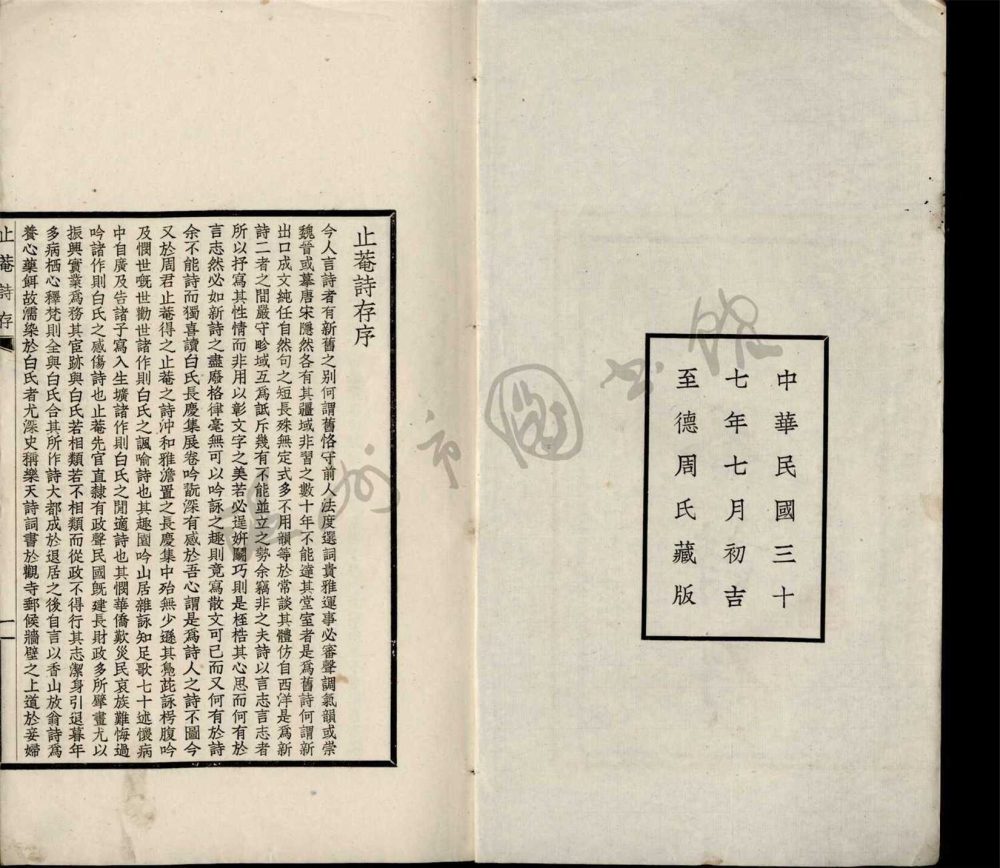 中華民國三十
七年七月初吉
至德周氏藏版
止菴詩存序
今人言詩者有新舊之別何謂舊恪守前人法度選詞貴雅運事必審聲調氣韻或崇
魏晉或摹唐宋隱然各有其疆域非習之數十年不能達其堂室者是爲舊詩何謂新
出口成文純任自然句之短長殊無定式多不用韻等於常談其體仿自西洋是爲新
詩二者之間嚴守畛域互爲詆斥幾有不能並立之勢余竊非之夫詩以言志言志者
所以抒寫其性情而非用以彰文字之美若必逞妍鬬巧則是桎梏其心思而何有於
言志然必如新詩之盡廢格律毫無可以吟詠之趣則竟寫散文可已而又何有於詩
余不能詩而獨喜讀白氏長慶集展卷吟翫深有感於吾心謂是爲詩人之詩不圖今
又於周君止菴得之止菴之詩沖和雅澹置之長慶集中殆無少遜其鳧茈詠枵腹吟
及憫世嘅世勸世諸作則白氏之諷喻詩也其趣園吟山居雜詠知足歌七十述懷病
中自廣及告諸子寫入生壙諸作則白氏之閒適詩也其憫華僑歎災民哀族難悔過
吟諸作則白氏之感傷詩也止菴先官直隸有政聲民國旣建長財政多所擘畫尤以
振興實業爲務其宦跡與白氏若相類若不相類而從政不得行其志潔身引退暮年
多病栖心釋梵則全與白氏合其所作詩大都成於退居之後自言以香山放翁詩爲
養心藥餌故濡染於白氏者尤深史稱樂天詩詞書於觀寺郵候牆壁之上道於妾婦
止菴詩存
一